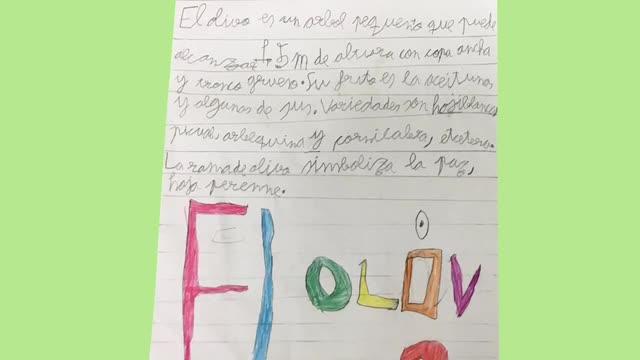 El olivo es un arbol pequeño que puede
alcanzar 15 m de altura con copa ancha
y tronco grueso. Su fruto es la aceitunas
y algunas de sus. Variedades son hojiblanca
picual, arbequina y cornicabra, etcetera.
La rama de olivo simboliza la paz,
hoja perenne.
El OLiV